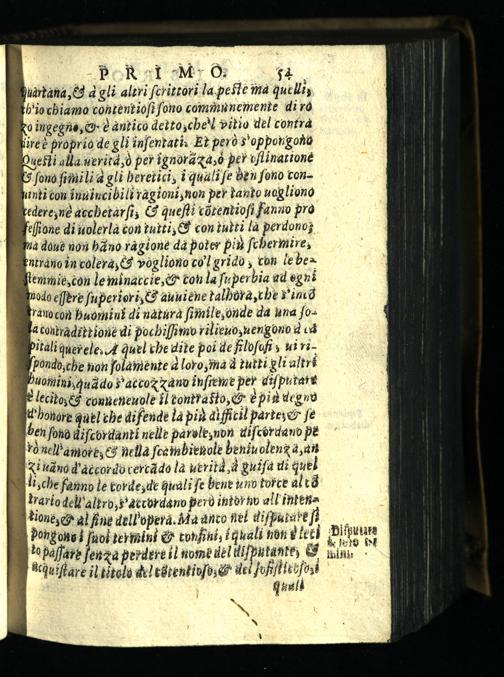 PRIMO. 54
quartana, & à gli altri scrittori la peste ma quelli,
ch'io chiamo contentiosi sono communemente di ro
zo ingegno, & è antico detto, che'l vitio del contra
dire è proprio de gli insensati. Et però s'oppongono
Questi alla uerità, ò per ignorãza, ò per ostinatione
& sono simili à gli heretici, i quali se ben sono con-
uinti con inuincibili ragioni, non per tanto uogliono
cedere, nè acchetarsi, & questi cõtentiosi fanno pro
fessione di uolerla con tutti, & con tutti la perdono;
ma doue non hãno ragione da poter più schermire,
entrano in colera, & vogliono co'l grido, con le be-
stemmie, con le minaccie, & con la superbia ad ogni
modo essere superiori, & auuiene talhora, che s'incõ
trano con huomini di natura simile, onde da una so-
la contradittione di pochissimo rilieuo, uengono à ca
pitali querele. A quel che dite poi de filosofi, ui ri-
spondo, che non solamente à loro, ma à tutti gli altri
huomini, quãdo s'accozzano insieme per disputare
è lecito, & conueneuole il contrasto, & è più degno
d'honore quel che difende la più difficil parte, & se
ben sono discordanti nelle parole, non discordano pe
rò nell'amore, & nella scambieuole beniuolenza, an
zi uãno d'accordo cercãdo la uerità, à guisa di quel
li, che fanno le corde, de quali se bene uno torce al cõ
trario dell'altro, s'accordano però intorno all'inten-
tione, & al fine dell'opera. Ma anco nel disputare si
pongono i suoi termini & confini, i quali non è leci
to passare senza perdere il nome del disputante, &
acquistare il titolo del cõtentioso, & del sofisticoso,
quali
Disputare
& suoi ter
mini.